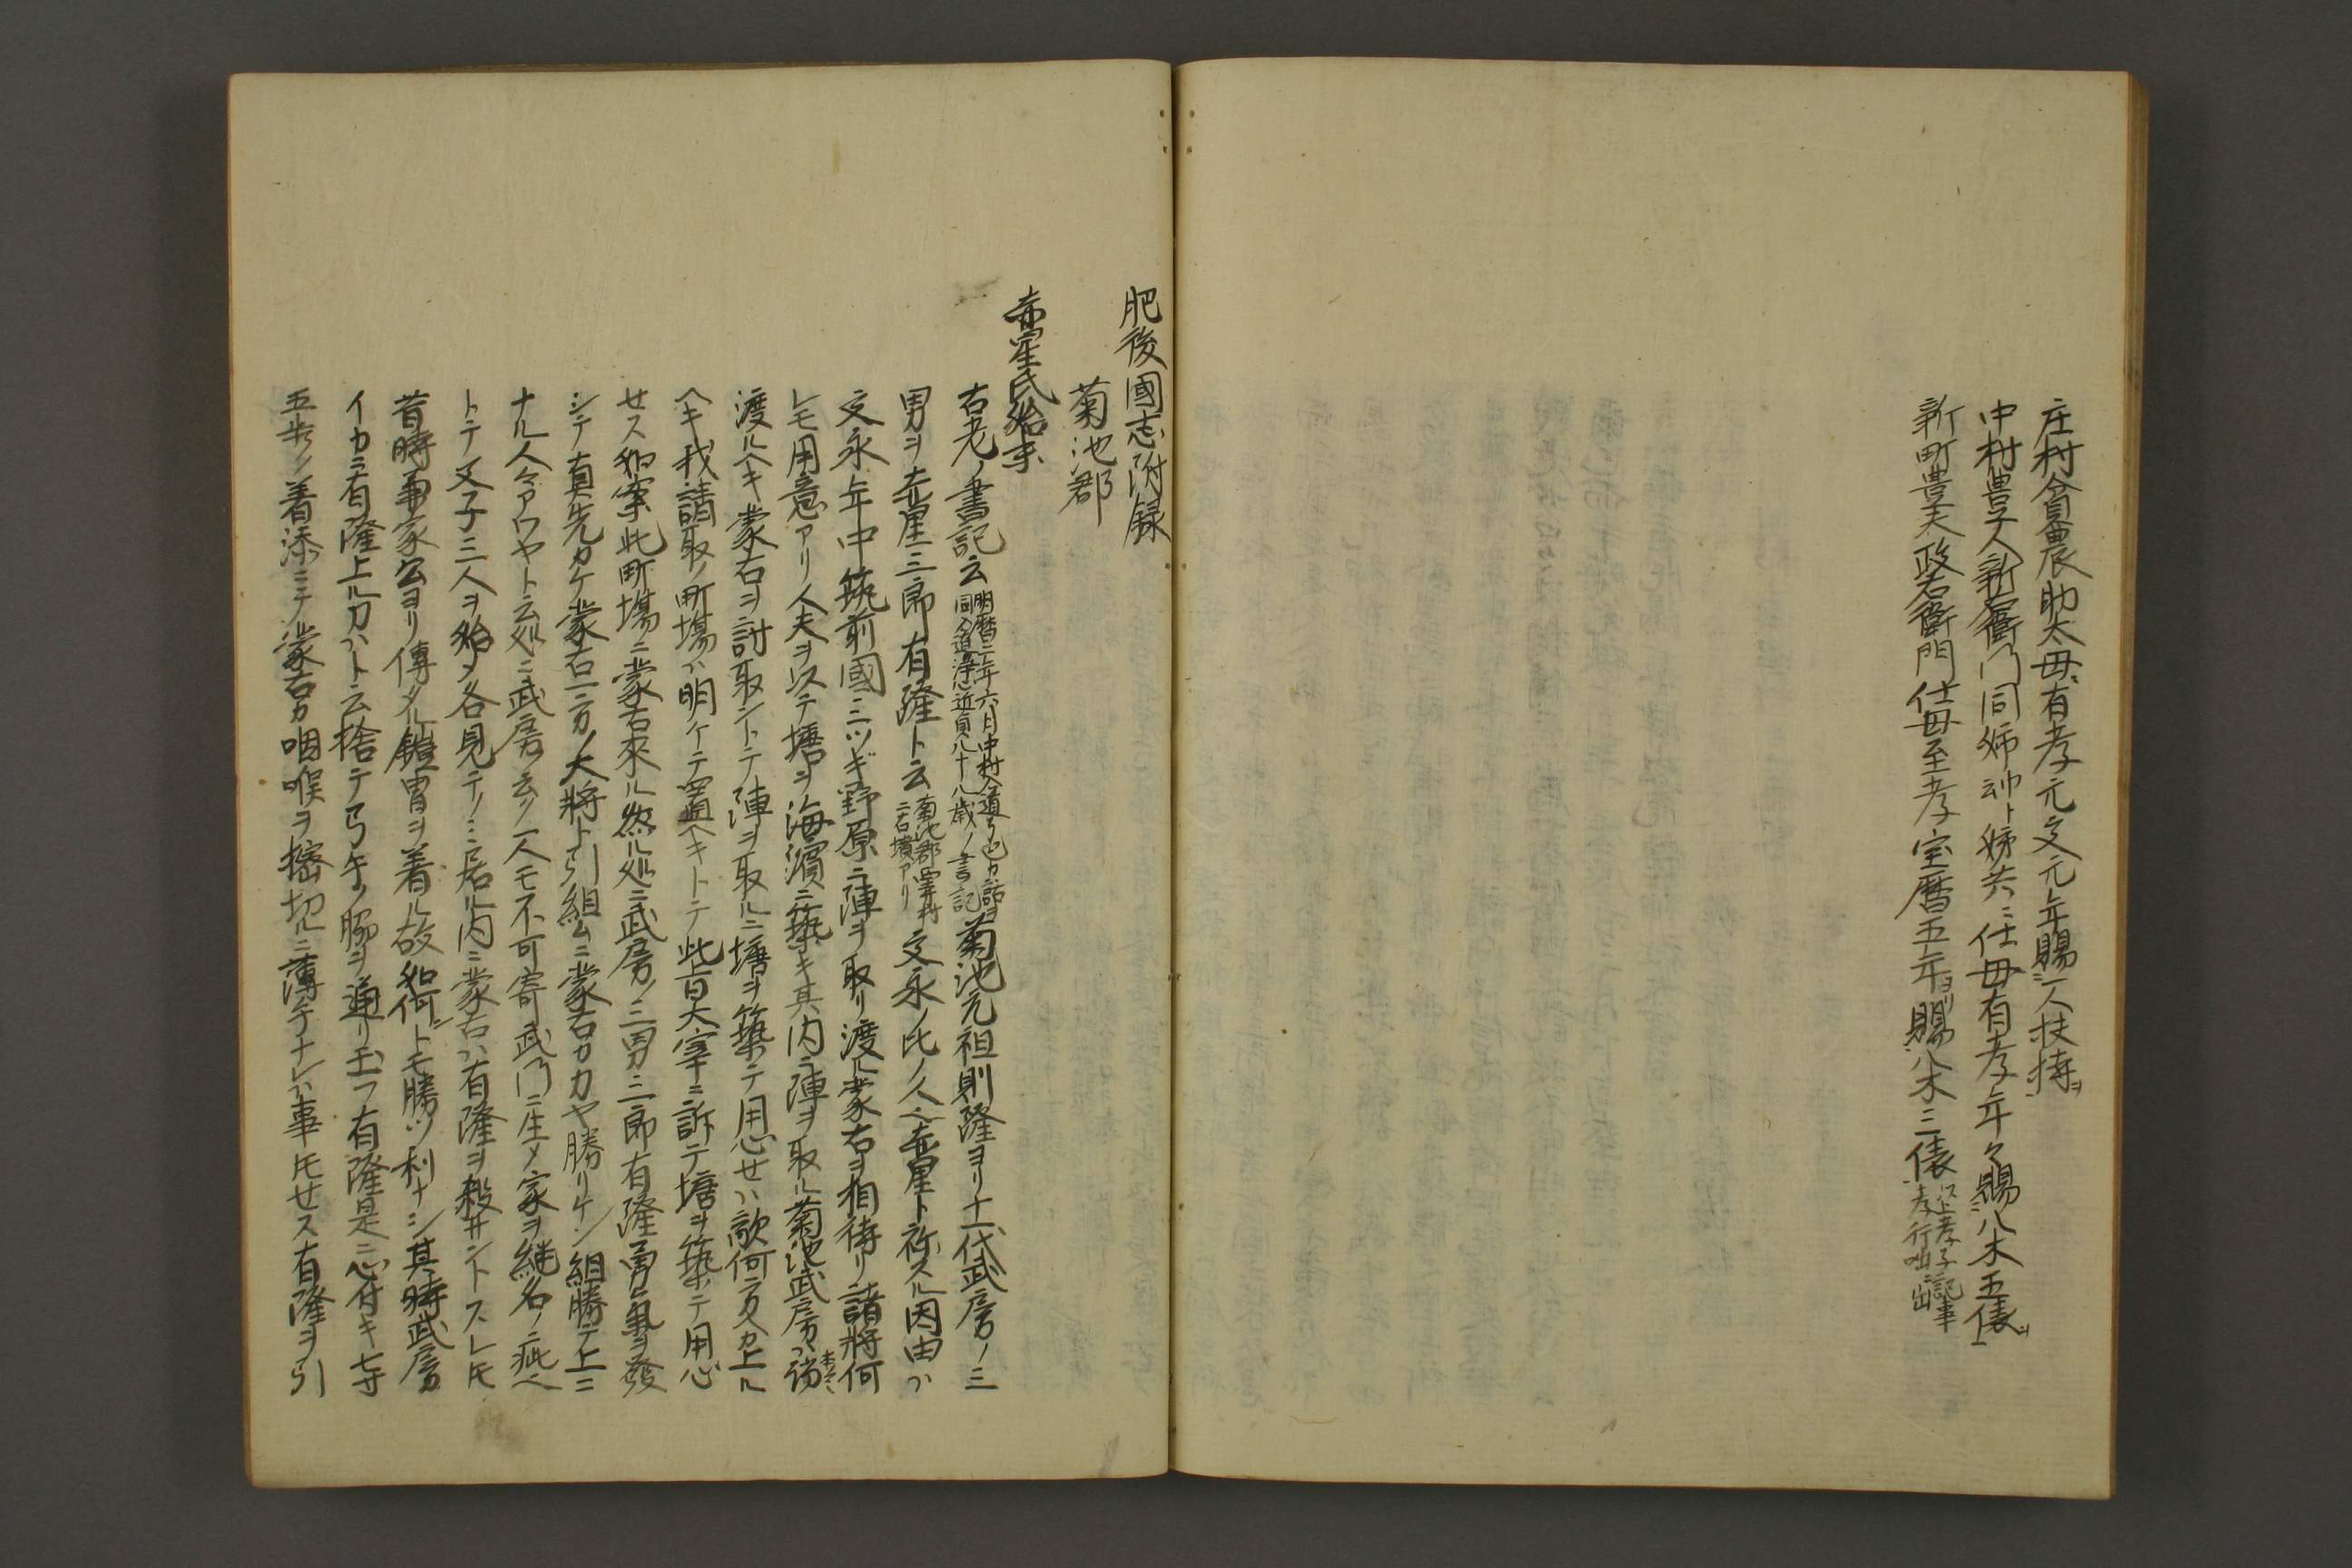 庄村貧農助太母ニ有孝元文元年賜一人扶持ヲ
中村豊子人新衛門同姉ト姊共ニ仕母有孝年々賜八木五俵ヲ
新町豊夫政右衛門仕母至孝宝暦五年ヨリ賜八木三俵 以上孝子記事孝行ニ出
肥後國志附録
菊池郡
赤星氏始末
右老ノ書記云 明暦二年六月中村入道方ヨリ話ヲ同入道浄心近貞八十八歳ノ書記 菊池元祖則隆ヨリ十一代武房ノ三
男ヲ赤星三郎有隆ト云 菊池郡重村ニ石墳アリ 文永ノ比ノ人也赤星ト称スル因由ハ
文永年中筑前國ミツギ野原ニ陣ヲ取リ渡ル蒙古ヲ相待リ諸將何
レモ用意アリ人夫ヲ以テ塘ヲ海濱ニ築キ其内ニ陣ヲ取ル菊池武房ハ
渡ルヘキ蒙古ヲ討取ントテ陣ヲ取ルニ塘ヲ築テ用心セハ敵何方ヘカ上ル
ヘキ我請取ノ町場ハ明ケテ置ヘキトテ此旨大宰ニ訴テ塘ヲ築テ用心
セス如案此町場ニ蒙古來ル然ル処ニ武房ノ三男三郎有隆勇氣ヲ發
シテ真先カケ蒙古一方ノ大將ト引組ムニ蒙古カ力ヤ勝リケン組勝テ上ニ
ナル人々アワヤト云処ニ武房云ク一人モ不可寄武門ニ生メ家ヲ継名ノ疵ヘ
トテ父子三人ヲ始メ各見テノミ居ル内ニ蒙古ハ有隆ヲ殺サントスレ𪜈
昔時頼家公ヨリ傳タル鎧冑ヲ着ル故如何トモ勝ツ利ナシ其時武房
イカニ有隆上ル刀ハト云捨テ弓午ノ脇ヲ通リ玉フ有隆是ニ心付キ七寸
五歩ノ着添ニテ蒙古カ咽喉ヲ搔切ルニ薄手ナレハ事𪜈セス有隆ヲ引